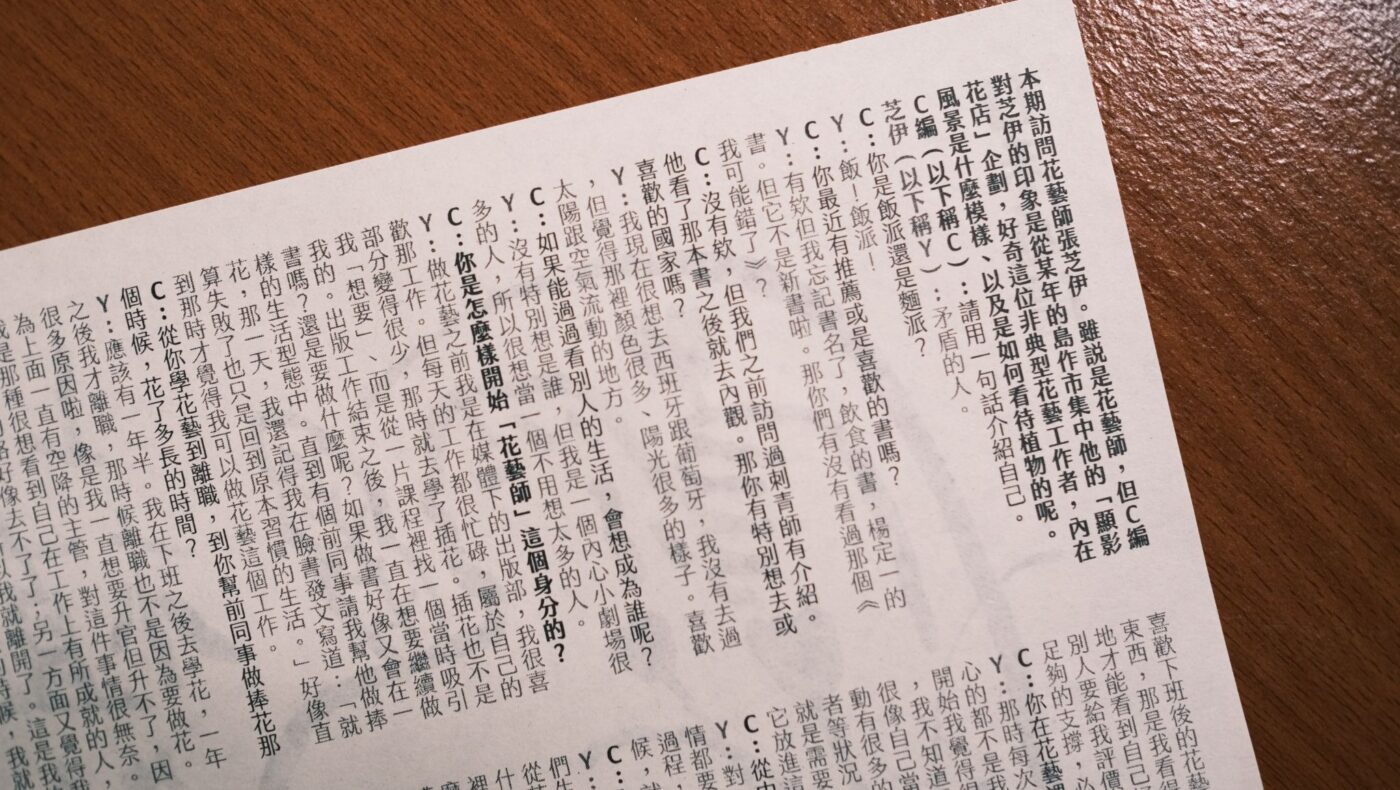 本期訪問花藝師張芝伊。雖說是花藝師，但C編
對芝伊的印象是從某年的島作市集中他的「顯影
花店」企劃，好奇這位非典型花藝工作者，內在
風景是什麼模樣、以及是如何看待植物的呢。
C編（以下稱C）：請用一句話介紹自己。
芝伊（以下稱Y）：矛盾的人。
C：你是飯派還是麵派？
Y：飯！飯派！
C：你最近有推薦或是喜歡的書嗎？
Y：有欸但我忘記書名了，飲食的書，楊定一的
書。但它不是新書啦。那你們有沒有看過那個《
我可能錯了》？
C：沒有欸，但我們之前訪問過刺青師有介紹。
他看了那本書之後就去內觀。那你有特別想去或
喜歡的國家嗎？
Y：我現在很想去西班牙跟葡萄牙，我沒有去過
，但覺得那裡顏色很多、陽光很多的樣子。喜歡
太陽跟空氣流動的地方。
C：如果能過過看別人的生活，會想成為誰呢？
Y：沒有特別想是誰，但我是一個內心小劇場很
多的人，所以很想當一個不用想太多的人。
C：你是怎麼樣開始「花藝師」這個身分的？
Y：做花藝之前我是在媒體下的出版部，我很喜
歡那工作。但每天的工作都很忙碌，屬於自己的
部分變得很少，那時就去學了插花。插花也不是
我「想要」、而是從一片課程裡找一個當時吸引
我的。出版工作結束之後，我一直在想要繼續做
書嗎？還是要做什麼呢？如果做書好像又會在一
樣的生活型態中。直到有個前同事請我幫他做捧
花，那一天，我還記得我在臉書發文寫道：「就
算失敗了也只是回到原本習慣的生活。」好像直
到那時才覺得我可以做花藝這個工作。
C：從你學花藝到離職，到你幫前同事做捧花那
個時候，花了多長的時間？
Y：應該有一年半。我在下班之後去學花，一年
之後我才離職，那時候離職也不是因為要做花。
很多原因啦，像是我一直想要升官但升不了，因
為上面一直有空降的主管，對這件事情很無奈。
我是那種很想看到自己在工作上有所成就的人，
好像去不了了；另一方面又覺得我
我就離開了。這是我
喜歡下班後的花藝
東西，那是我看得
地才能看到自己
別人要給我評價
足夠的支撐，必
C：你在花藝
Y：那時每次
心的都不是我
開始我覺得很
，我不知道
很像自己當
動有很多的
者等狀況
就是需要
它放進這
C：從中
Y：對
情都要
過程，
候，
C：
Y：
們生
從
什
裡